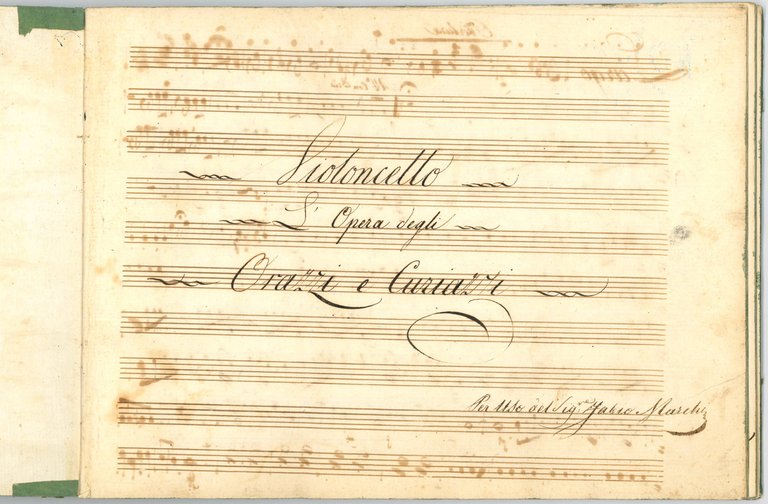 Violoncello
L' Opera degli
Orazzi e Curiazzi
Per Uso del Sig.re Fabio